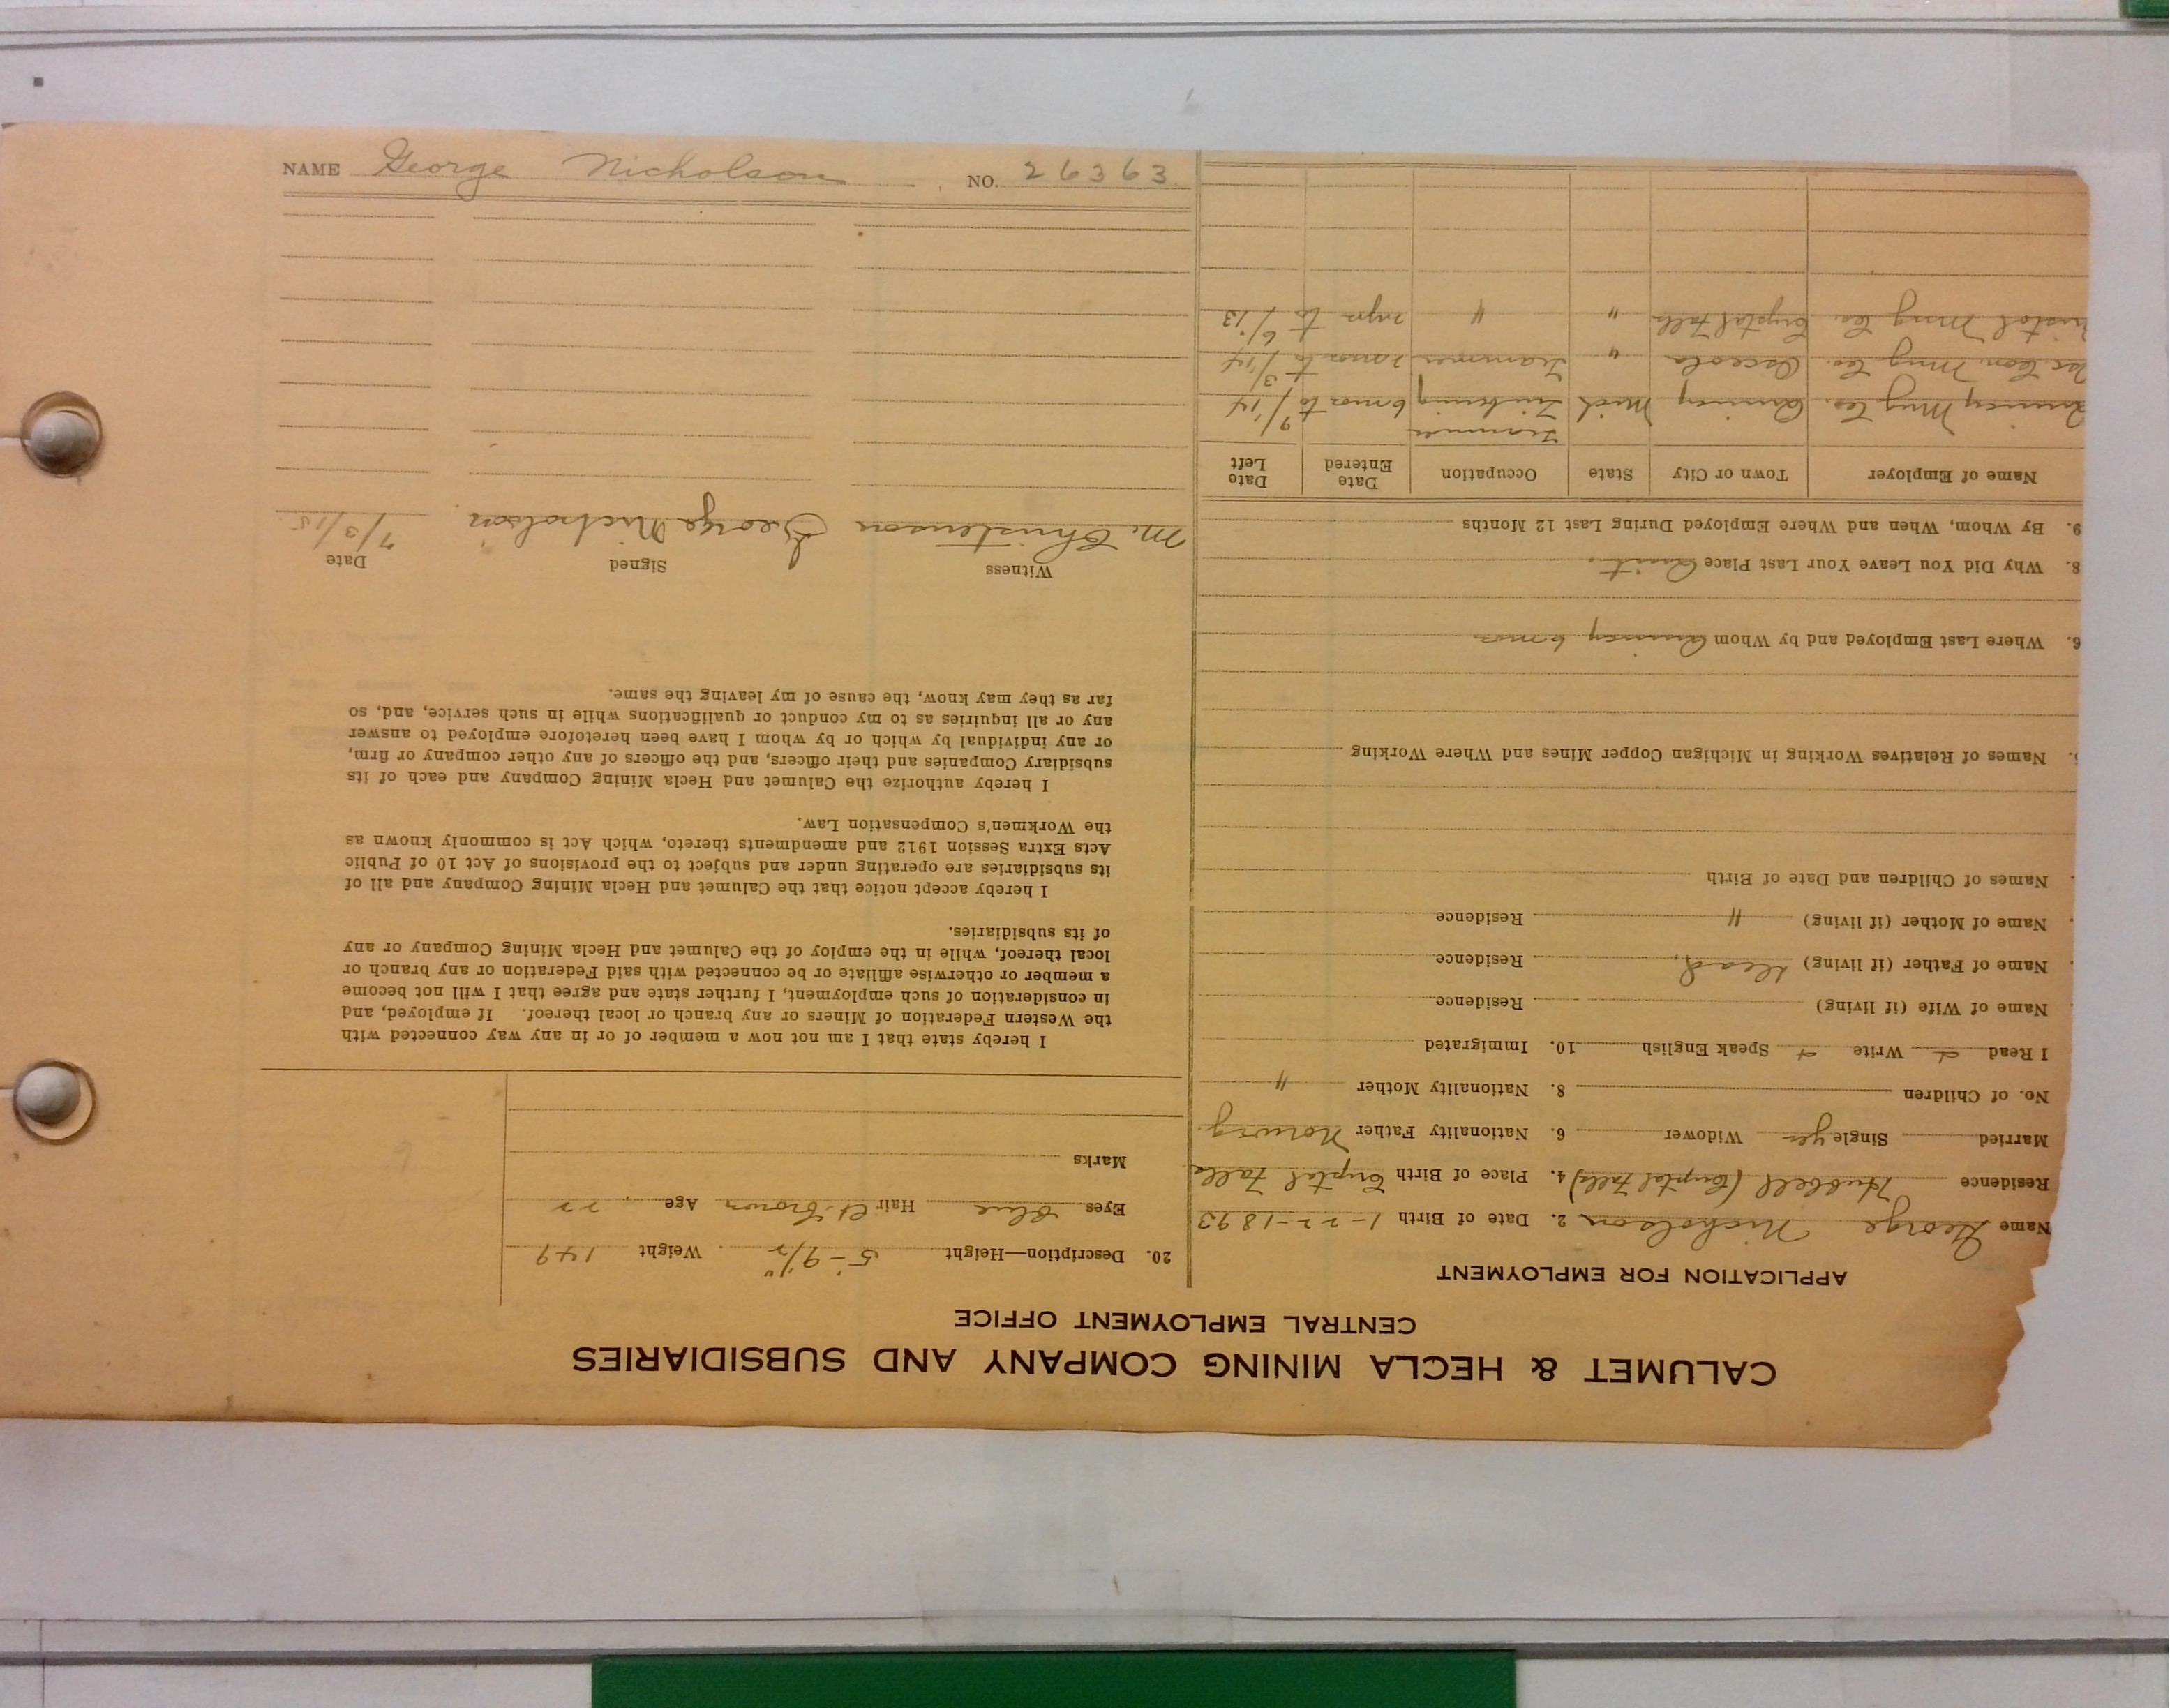 NAME George Nicholson NO. 26363
CALUMET & HECLA MINING COMPANY AND SUBSIDIARIES
CENTRAL EMPLOYMENT OFFICE
APPLICATION FOR EMPLOYMENT
Name George Nicholson 2. Date of Birth 1-22-1893
Residence Hubbell (Crystal Falls) 4. Place of Birth Crystal Falls
Married Single yes Widower 6. Nationality Father Norway
No. of Children 8. Nationality Mother "
I Read Write Speak English 10. Immigrated
Name of Wife (if living) Residence
Name of Father (if living) Dead, Residence
Name of Mother (if living) " Residence
Names of Children and Date of Birth
Names of Relatives Working in Michigan Copper Mines and Where Working
6. Where Last Employed and by Whom Quincy 6 mos
8. Why Did You Leave Your Last Place Quit.
9. By Whom, When and Where Employed During Last 12 Months
Name of Employer Town or City State Occupation Date Entered Date Left
Quincy Mng Co. Quincy Mich Trammer 6 mos to 9/14
Con. Mng Co. Osceola " Trammer 2 mos to 3/14
Bristol Mng Co. Crystal Falls " " to 6/13
20. Description—Height 5'-9 1/2" Weight 149
Eyes blue Hair lt. brown Age 22
Marks
I hereby state that I am not now a member of or in any way connected with
the Western Federation of Miners or any branch or local thereof. If employed, and
in consideration of such employment, I further state and agree that I will not become
a member or otherwise affiliate or be connected with said Federation or any branch or
local thereof, while in the employ of the Calumet and Hecla Mining Company or any
of its subsidiaries.
I hereby accept notice that the Calumet and Hecla Mining Company and all of
its subsidiaries are operating under and subject to the provisions of Act 10 of Public
Acts Extra Session 1912 and amendments thereto, which Act is commonly known as
the Workmen's Compensation Law.
I hereby authorize the Calumet and Hecla Mining Company and each of its
subsidiary Companies and their officers, and the officers of any other company or firm,
or any individual by which or by whom I have been heretofore employed to answer
any or all inquiries as to my conduct or qualifications while in such service, and, so
far as they may know, the cause of my leaving the same.
Witness Signed Date
M. Christenson George Nicholson 7/3/15